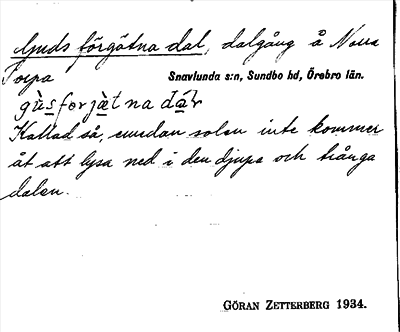 Guds förgätna dal, dalgång å Norra
Torpa
Snavlunda s:n, Sundbo hd, Örebro län.
gùs forjæ̀t na dáɫ
Kallad så, emedan solen inte kommer
åt att lysa ned i den djupa och trånga
dalen.
GÖRAN ZETTERBERG 1934.